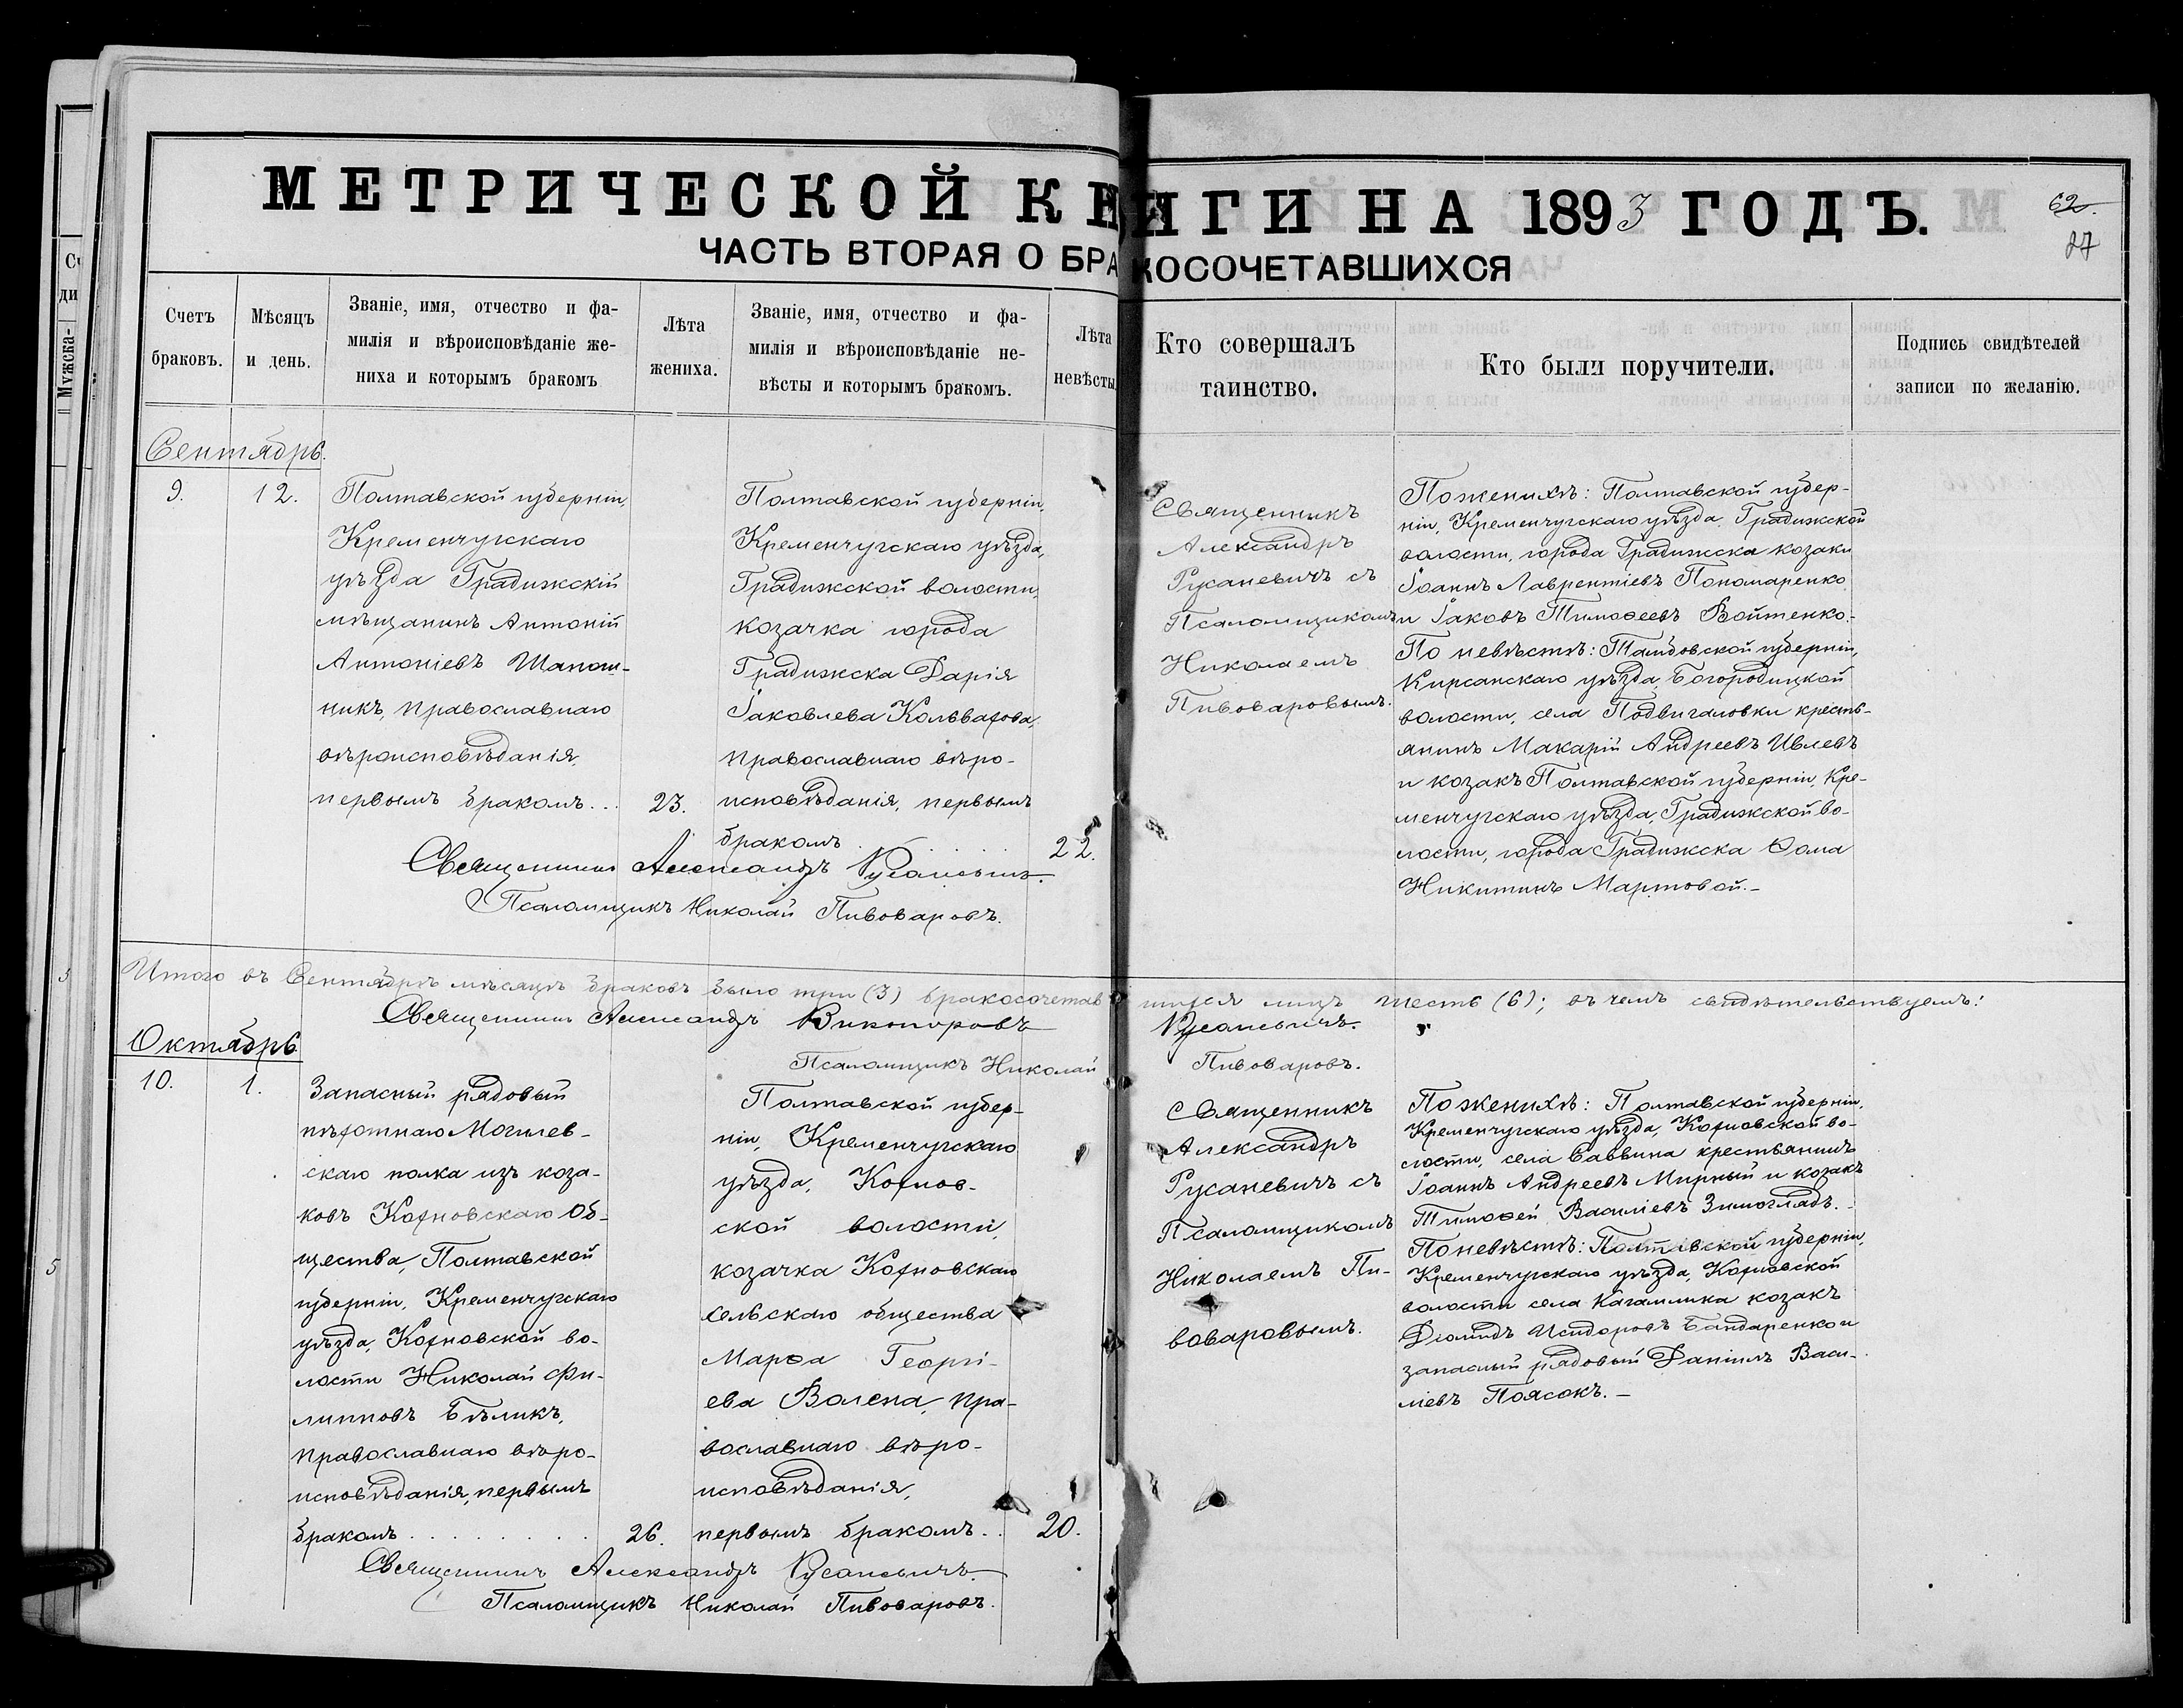 МЕТРИЧЕСКОЙ КНИГИ НА 1893 ГОДЪ.
62.
87
ЧАСТЬ ВТОРАЯ О БРАКОСОЧЕТАВШИХСЯ
Счетъ
браковъ.
Мѣсяцъ
и день.
Званіе, имя, отчество и фа-
милія и вѣроисповѣданіе же-
ниха и которымъ бракомъ
Лѣта
жениха.
Званіе, имя, отчество и фа-
милія и вѣроисповѣданіе не-
вѣсты и которымъ бракомъ.
Лѣта
невѣсты.
Кто совершалъ
таинство.
Кто были поручители.
Подпись свидѣтелей
записи по желанію.
Сентябрь.
9.
12.
Полтавской губерніи,
Кременчугскаго
уѣзда Градижскій
мѣщанинъ Антоній
Антоніевъ Шапош-
никъ, православнаго
вѣроисповѣданія,
первымъ бракомъ...
23.
Полтавской губерніи,
Кременчугскаго уѣзда,
Градижской волости,
козачка города
Градижска Дарія
Іаковлева Кольвахова,
православнаго вѣро-
исповѣданія, первымъ
бракомъ
22.
Священникъ
Александръ
Русаневичъ съ
Псаломщикомъ
Николаемъ
Пивоваровымъ.
По женихѣ: Полтавской губер-
ніи, Кременчугскаго уѣзда, Градижской
волости, города Градижска козаки
Іоаннъ Лаврентіевъ Пономаренко
и Іаковъ Тимоѳеевъ Войтенко.-
По невѣстѣ: Тамбовской губерніи,
Кирсанскаго уѣзда, Богородицкой
волости, села Подвигаловки кресть-
янинъ Макарій Андреевъ Ивлевъ
и козакъ Полтавской губерніи, Кре-
менчугскаго уѣзда, Градижской во-
лости, города Градижска Ѳома
Никитинъ Мартовой.-
Священникъ Александръ Русаневичъ.
Псаломщикъ Николай Пивоваровъ.
Итого въ Сентябрѣ мѣсяцѣ браковъ было три (3) бракосочетавшихся лицъ шесть (6); въ чемъ свидѣтельствуемъ:
Священникъ Александръ Викторовъ Русаневичъ.
Псаломщикъ Николай Пивоваровъ.
Октябрь
10.
1.
Запасный рядовый
пѣхотнаго Могилев-
скаго полка изъ коза-
ковъ Кохновскаго Об-
щества, Полтавской
губерніи, Кременчугскаго
уѣзда, Кохновской во-
лости Николай Фи-
липповъ Бѣликъ,
православнаго вѣро-
исповѣданія, первымъ
бракомъ
26.
Полтавской губер-
ніи, Кременчугскаго
уѣзда, Кохнов-
ской волости,
козачка Кохновскаго
сельскаго общества
Марѳа Георгі-
ева Волена, пра-
вославнаго вѣро-
исповѣданія,
первымъ бракомъ..
20.
Священникъ
Александръ
Русаневичъ съ
Псаломщикомъ
Николаемъ Пи-
воваровымъ.
По женихѣ: Полтавской губерніи,
Кременчугскаго уѣзда, Кохновской во-
лости, села Саввина крестьянинъ
Іоаннъ Андреевъ Мирный и козакъ
Тимоѳей Василіевъ Зимоглядъ.-
По невѣстѣ: Полтавской губерніи,
Кременчугскаго уѣзда, Кохновской
волости села Кагамлика козакъ
Діомидъ Исидоровъ Бандаренко и
запасный рядовый Даніилъ Васи-
ліевъ Поясокъ.-
Священникъ Александръ Русаневичъ.
Псаломщикъ Николай Пивоваровъ.